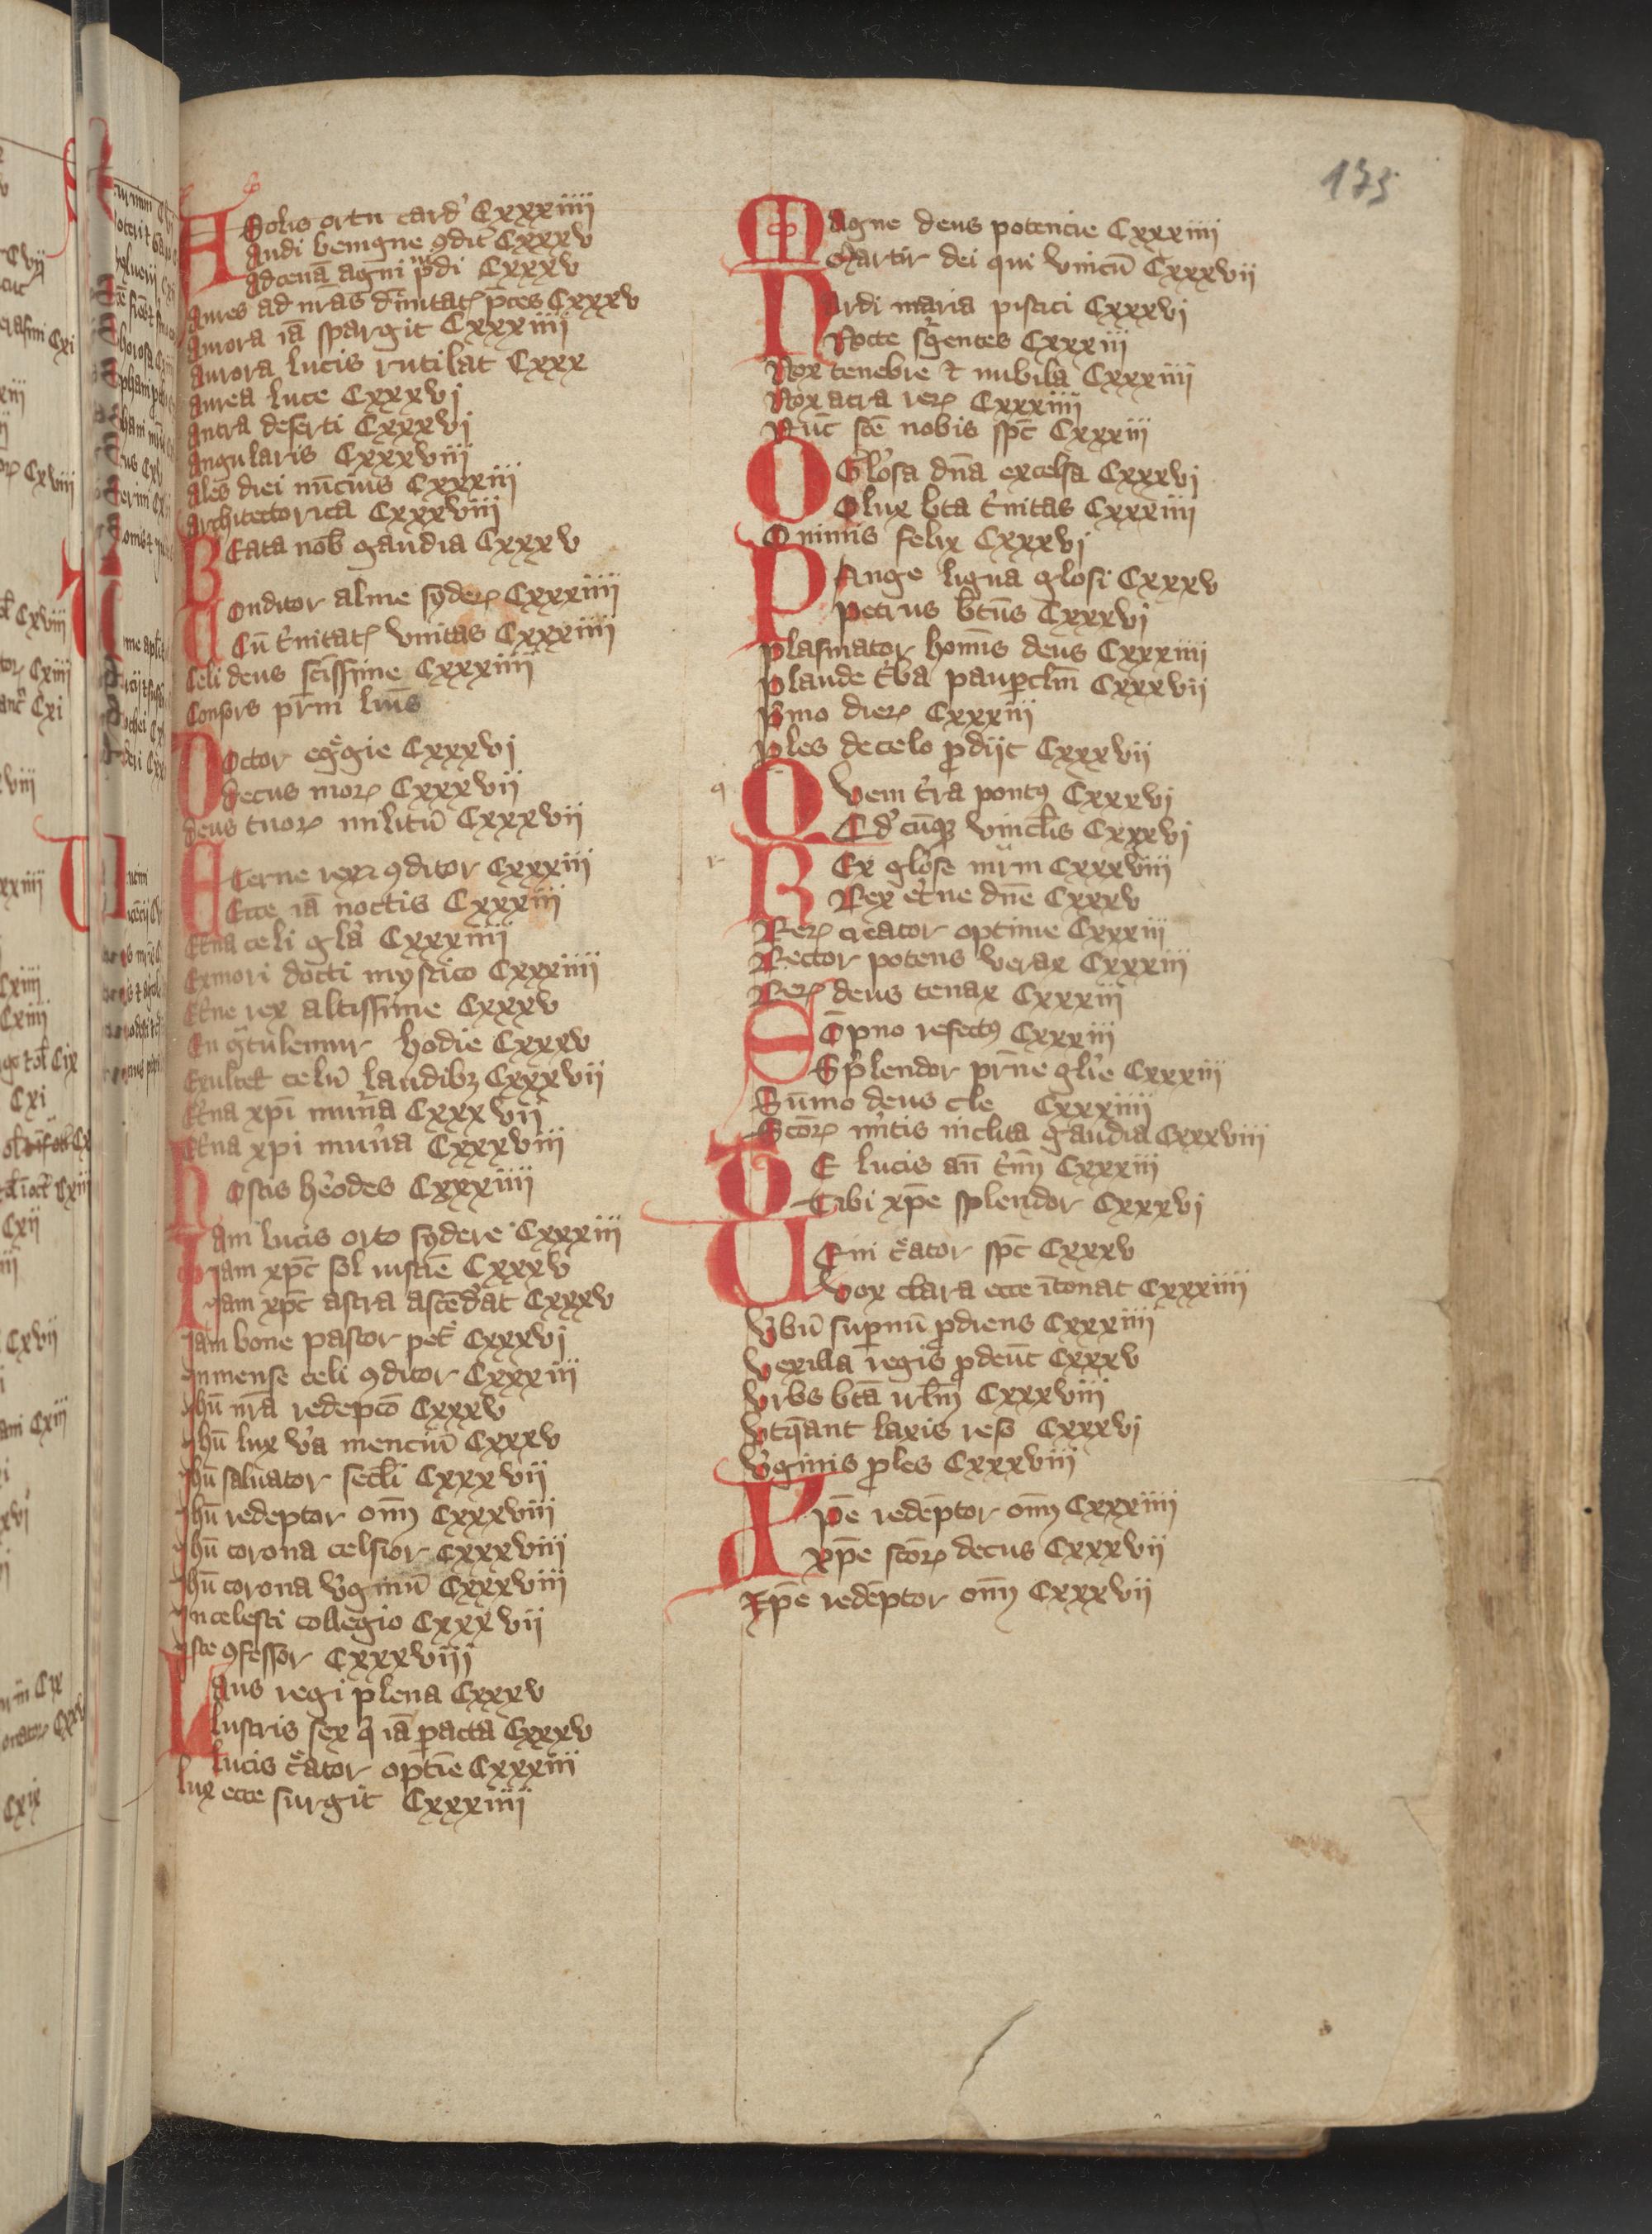 175
A Solus ortu card' Cxxxiiii
Audi benigne ꝯdit' Cxxxv
Ad cenā agni ꝓdi Cxxxv
Aures ad nr̄as Cxxxv
Aurora iā spargit Cxxxiiii
Aurora lucis rutilat Cxxx
Aurea luce Cxxxvj
Antra deserti Cxxxvj
Angularis Cxxxviii
Ales diei nūcius Cxxxiii
Architectorica Cxxxviii
BEata nob̄ gaudia Cxxxv
Conditor alme syderꝝ Cxxxiiii
Cū t'nitatꝭ vnitas Cxxxiiii
Celi deus scīssime Cxxxiiii
Consors pr̄ni
Doctor egͥgie Cxxxvj
Decus morꝝ Cxxxvii
Deus tuorꝝ militū Cxxxvii
Eterne reꝝ ꝯditor Cxxxiii
Ecce iā noctis Cxxxiii
Et'na celi gl'a Cxxxiiii
Exmori docti mystico Cxxxiiii
Et'ne rex altissime Cxxxv
En gᵃtulemur hodie Cxxxv
Exultet celū laudibꝫ Cxxxvii
Et'na xpī mun'a Cxxxvii
Et'na xpi mun'a Cxxxviii
Hostis h'odes Cxxxiiii
Iam lucis orto sydere Cxxxiii
Iam xpc̄ sol iusticē Cxxxv
Iam xpc̄ astra ascēd'at Cxxxv
Iam bone pastor pet' Cxxxvj
Inmense celi ꝯditor Cxxxiii
Ihū nr̄a redepcō Cxxxv
Ihū lux v'a menciū Cxxxv
Ihū saluator secl̄i Cxxxvii
Ihū redeptor om̄ Cxxxviii
Ihū corona celsior Cxxxviii
Ihū corona v'ginū Cxxxviii
In celesti collegio Cxxxvii
Iste ꝯfessor Cxxxviii
Laus regi plena Cxxxv
Lustris sex q̄ iā ꝑacta Cxxxv
Lucis cͤator optīe Cxxxiii
Lux ecce surgit Cxxxiiii
Magne deus potencie Cxxxiiii
Martir dei qui vnicū Cxxxvii
Nardi maria pistici Cxxxvj
Nocte sgͬentes Cxxxiii
Nox tenebre et nubila Cxxxiiii
Nox atra reꝝ Cxxxiiii
Nūc scē nobis spc̄ Cxxxiii
O Gl'osa dn̄a excelsa Cxxxvj
O lux bt̄a t'nitas Cxxxiiii
O nimis felix Cxxxvj
PAnge ligua glosi Cxxxv
Petrus bt̄us Cxxxvj
Plasmator homīs deus Cxxxiiii
Plaude t'ba paupercl̄m Cxxxvii
Pͥmo dierꝝ Cxxxiii
Ples de celo ꝓdijt Cxxxvii
q Qvem t'ra pontꝰ Cxxxvj
Qd' cūqꝫ vincl̄is Cxxxvj
r REx gl'ose mr̄m Cxxxviii
Rex et'ne dn̄e Cxxxv
Rerꝝ creator optime Cxxxiii
Rector potens verax Cxxxiii
Rerꝝ deus tenax Cxxxiii
Sōpno refectꝰ Cxxxiii
Splendor pr̄ne gl'ie Cxxxiii
Sūmo deus cle Cxxxiiii
Scōrꝝ m'itis inclita gaudia Cxxxviii
TE lucis an̄ t'm̄ Cxxxiii
Tibi xp̄e splendor Cxxxvj
VEni cͤator spc̄ Cxxxv
Vox clara ecce ītonat Cxxxiiii
V'bū suꝑnū ꝓdiens Cxxxiiii
Vexilla regis ꝓdeūt Cxxxv
Vrbs bt̄a irl̄m Cxxxviii
Vt q̄ant laxis reso Cxxxvj
V'ginis ꝓles Cxxxviii
Xp̄e redēptor om̄ Cxxxiiii
Xp̄e scōrꝝ decus Cxxxvii
Xp̄e redēptor om̄ Cxxxvii